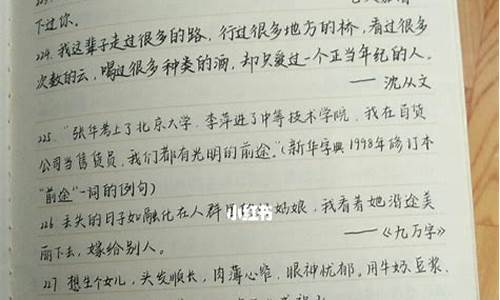 下过你。
224. 我这辈子走过很多的路，行过很多地方的桥，看过很多
次数的云，喝过很多种类的酒，却只爱过一个正当年纪的人。
—— 沈从文
225. “张华考上了北京大学，李萍进了中等技术学院，我在百货
公司当售货员，我们都有光明的前途。”（新华字典1998年修订本
“前途”一词的例句）
226 丢失的日子如融化在人群里的 姑娘，我看着她沿途美
丽下去，嫁给别人。
——《九万字》
227 想生个女儿，头发顺长，肉薄心细，眼神忧郁。用牛奶豆浆、
小红书